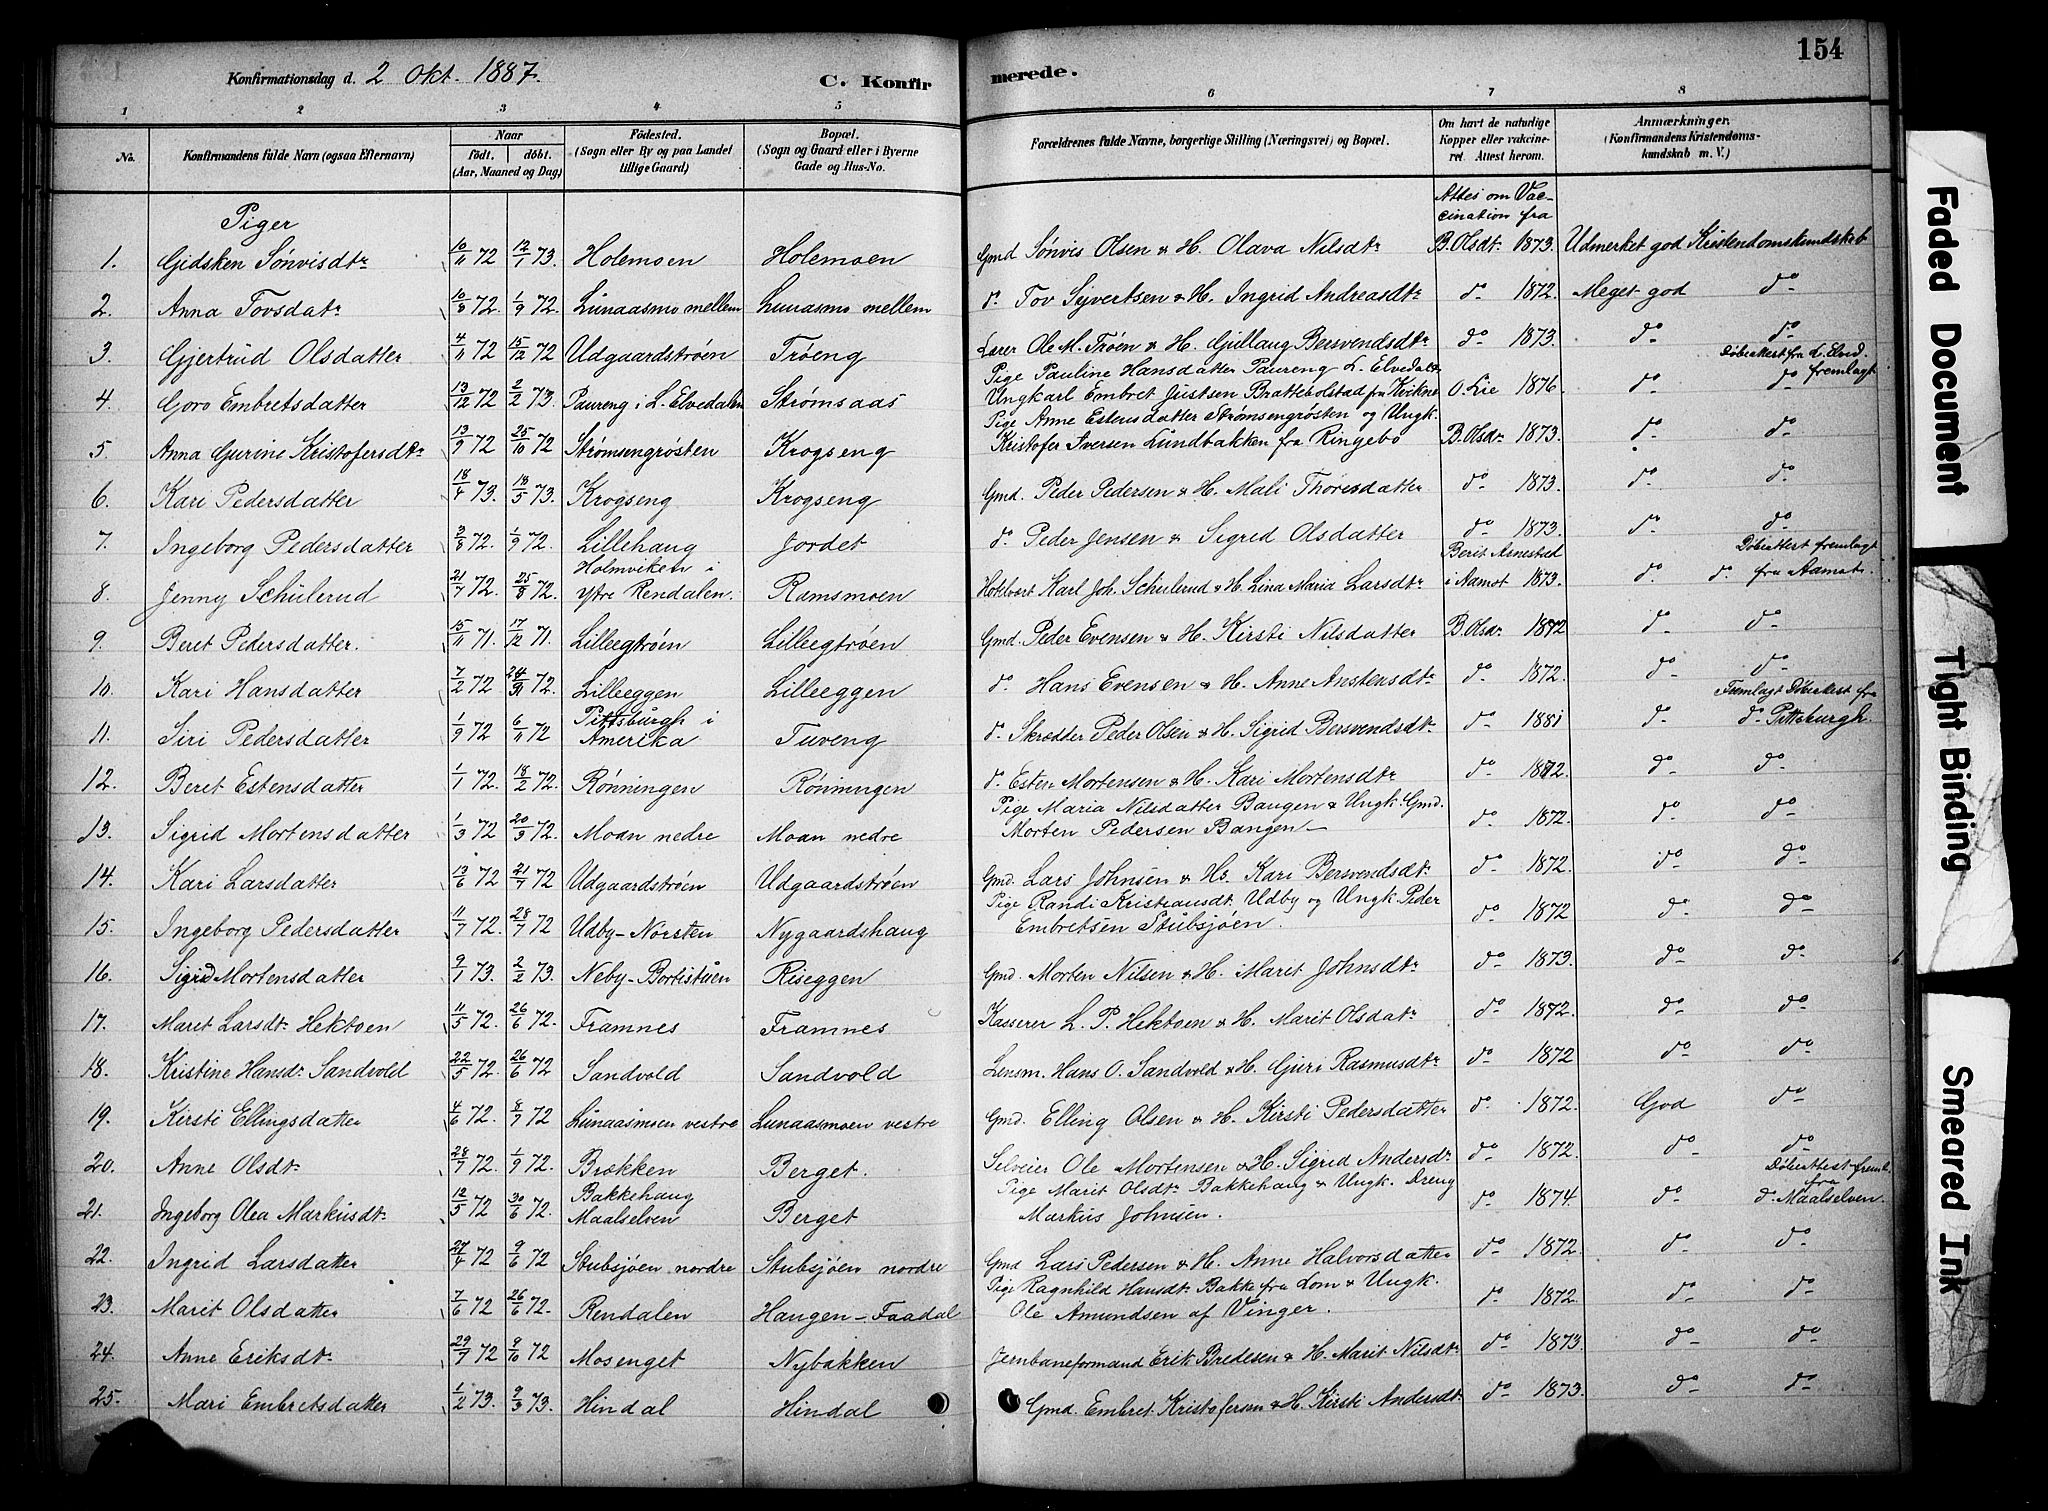 154
Konfirmationsdag d. 2 Okt. 1887.
C. Konfirmerede.
1 2 3 4 5 6 7 8
No. Konfirmandens fulde Navn (ogsaa Efternavn) Naar født, døbt. (Aar, Maaned og Dag) Fødested. (Sogn eller By og paa Landet tillige Gaard) Bopæl. (Sogn og Gaard eller i Byerne Gade og Hus-No. Forældrenes fulde Navne, borgerlige Stilling (Næringsvei) og Bopæl. Om havt de naturlige Kopper eller vakcineret. Attest herom. Anmærkninger. (Konfirmandens Kristendomskundskab m. V.)
Piger Attes om Vaccination fra
1. Gidsken Sønvisdtr 10/11 72 12/1 73. Holemoen Holemoen Gmd Sønvis Olsen & H. Olava Nilsdtr B. Olsdtr 1873. Udmerket god Kristendomskundskab
2. Anna Tovsdatr 10/8 72. 1/9 72. Lunaasmo mellem Lunaasmo mellem do Tov Syvertsen & H. Ingrid Andreasdtr do 1872. Meget god do
3. Gjertrud Olsdatter 4/11 72 15/12 72 Udgaardstrøen Trøeng Lærer Ole M. Trøen & H. Gjullaug Bersvendsdtr do 1873. do do
4. Goro Embretsdatter 13/12 72 2/2 73. Paureng i L. Elvedalen Strømsaas Pige Pauline Hansdatter Paureng L. Elvedal & Ungkarl Embret Justsen Brattebolstad fra Kvikne O. Lie 1876. do do Døbeattest fra L. Elved. fremlagt
5. Anna Gurine Kristofersdtr 13/9 72 25/10 72 Strømsengrøsten Krogseng Pige Anne Estensdatter Strømsengrøsten og Ungk. Kristofer Iversen Lundbakken fra Ringebo B. Olsdr 1873. do do
6. Kari Pedersdatter 18/4 73. 18/5 73. Krogseng Krogseng Gmd. Peder Pedersen & H. Mali Thoresdatter do 1873. do do
7. Ingeborg Pedersdatter 3/8 72. 1/9 72. Lillehaug Jordet do Peder Jensen & Sigrid Olsdatter do 1873 do do
8. Jenny Schulerud 21/7 72. 25/8 72. Holmviken i ytre Rendalen. Ramsmoen Hotelvært Karl Joh. Schulerud & H. Lina Maria Larsdtr Berit Arnestad i Aamot 1873. do do Døbeattest fremlagt fra Aamot.
9. Beret Pedersdatter. 15/11 71. 17/12 71. Lilleegtrøen Lilleegtrøen Gmd. Peder Evensen & H. Kirsti Nilsdatter B. Olsdr 1872 do do
10. Kari Hansdatter 7/2 72 24/3 72. Lilleeggen Lilleeggen do Hans Evensen & H. Anne Anstensdtr do 1872. do do
11. Siri Pedersdatter 1/9 72 6/11 72 Pittsburgh i Amerika Tuveng do Skrædder Peder Olsen & H. Sigrid Bersvendsdtr do 1881 do Fremlagt Døbeattest fra do Pittsburgh.
12. Beret Estensdatter 1/1 72 18/2 72. Rønningen Rønningen do Esten Mortensen & H. Kari Mortensdtr do 1872. do do
13. Sigrid Mortensdatter 1/3 72 20/3 72. Moan nedre Moan nedre Pige Maria Nilsdatter Bangen & Ungk. Gmd. Morten Pedersen Bangen do 1872. do do
14. Kari Larsdatter 13/6 72 21/7 72 Udgaardstrøen Udgaardstrøen Gmd. Lars Johnsen & Hs. Kari Bersvendsdtr do 1872. do do
15. Ingeborg Pedersdatter 11/7 72. 28/7 72 Udby-Norsten Nygaardshaug Pige Randi Kristiansdt. Udby og Ungk. Peder Embretsen Stubsjøen. do 1872 do do
16. Sigrid Mortensdatter 9/1 73. 2/2 73. Neby-Bortistuen Riseggen Gmd. Morten Nilsen & H. Marit Johnsdtr do 1873. do do
17. Maret Larsdtr Hektoen 11/5 72. 26/6 72. Framnes Framnes Kasserer L. P. Hektoen & H. Marit Olsdatr do 1872. do do
18. Kristine Hansdr Sandvold 22/5 72. 26/6 72 Sandvold Sandvold Lensm. Hans O. Sandvold & H. Guri Rasmusdtr do 1872 do do
19. Kirsti Ellingsdatter 4/6 72. 8/7 72 Lunaasmoen vestre Lunaasmoen vestre Gmd. Elling Olsen & H. Kirsti Pedersdatter do 1872. God do
20. Anne Olsdtr 28/7 72. 1/9 72. Brækken Berget. Selveier Ole Mortensen & H. Sigrid Andersdr do 1872. do do
21. Ingeborg Olea Markusdtr 12/5 72 30/6 72. Bakkehaug Maalselven Berget Pige Marit Olsdtr Bakkehaug & Ungk. Dreng Markus Johnsen. do 1874. do Døbeattest freml. fra do Maalselven.
22. Ingrid Larsdatter 27/4 72 9/6 72 Stubsjøen nordre Stubsjøen nordre Gmd Lars Pedersen & H. Anne Halvorsdatter do 1872. do do
23. Marit Olsdatter 7/6 72 26/6 72. Rendalen Haugen-Faadal Pige Ragnhild Hansdtr Bakke fra Lom & Ungk. Ole Amundsen af Vinger. do 1872. do do
24. Anne Eriksdtr 29/7 72 9/10 72 Mosenget Nybakken Jernbaneformand Erik Bredesen & H. Marit Nilsdtr do 1873. do do
25. Mari Embretsdatter 1/2 73. 9/3 73. Hindal Hindal Gmd. Embret Kristofersen & H. Kirsti Andersdtr do 1873. do do
Faded Document
Tight Binding
Smeared Ink